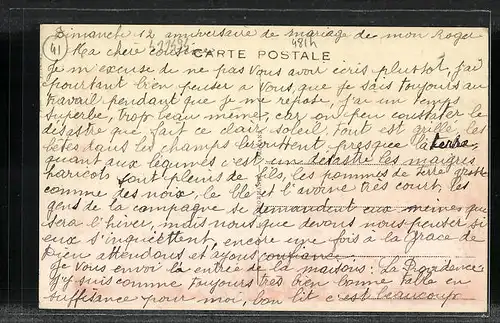 Dimanche 12 anniversaire de mariage de mon Roger
41
Ma chère cousine
CARTE POSTALE
Je m'excuse de ne pas vous avoir écris pluttôt, j'ai
pourtant bien penser a vous, que je sais toujours au
travail pendant que je me repose, j'ai un temps
superbe, trop beau même, car on peu constater le
désastre que fait ce clair soleil, tout est grillé, les
bêtes dans les champs broutent presque la terre,
quant aux légumes c'est un désastre les maigres
haricots sont pleins de fils, les pommes de terre
comme des noix, le blé et l'avoine très court, les
gens de la campagne se demandent eux meines que
sera l'hiver, mais nous que devons nous penser si
eux s'inquiettent, encore une fois à la grâce de
Dieu attendons et ayons confiance.
Je vous envoi la entrée de la maisons: La Providence
j'y suis comme toujours très bien bonne table en
suffisance pour moi, bon lit c'est beaucoup